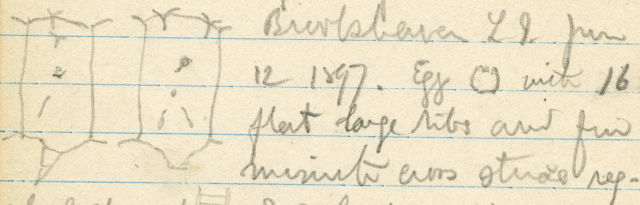 Brookhaven L I June
12 1897. Egg () with 16
flat large ribs and fine
minute cross striae reg-